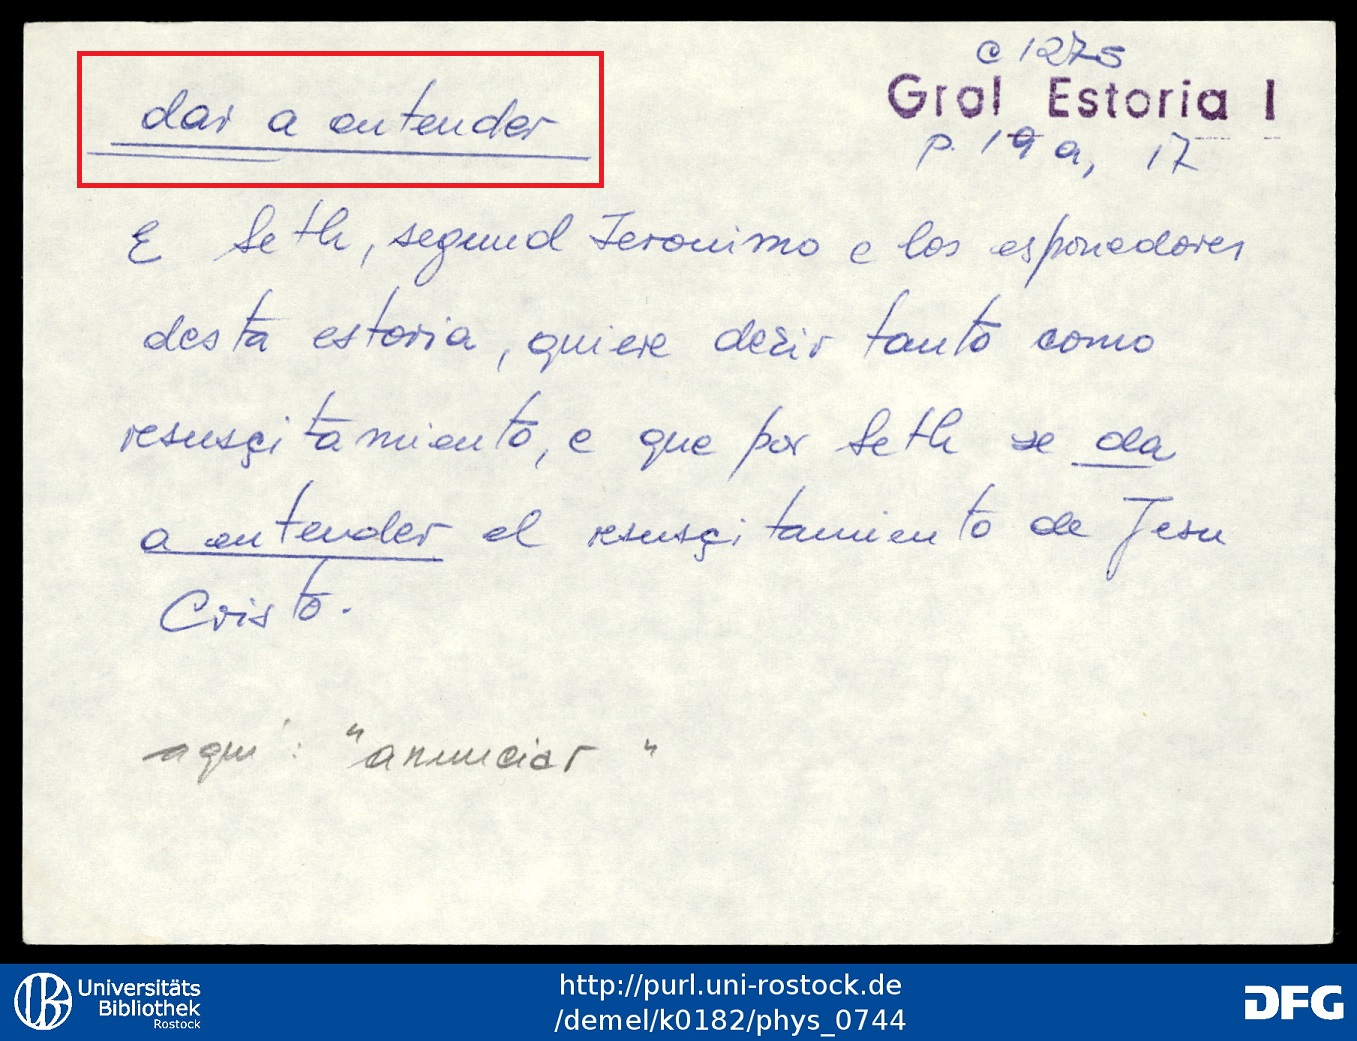 c 1275
Gral Estoria I
p. 19 a, 17
dar a entender
E Seth, segund Jeronimo e los esponedores
desta estoria, quiere dezir tanto como
resusçitamiento, e que por Seth se da
a entender el resusçitamiento de Jesu
Cristo.
aquí: "anunciar"
Universitäts
Bibliothek
Rostock
http://purl.uni-rostock.de
/demel/k0182/phys_0744
DFG